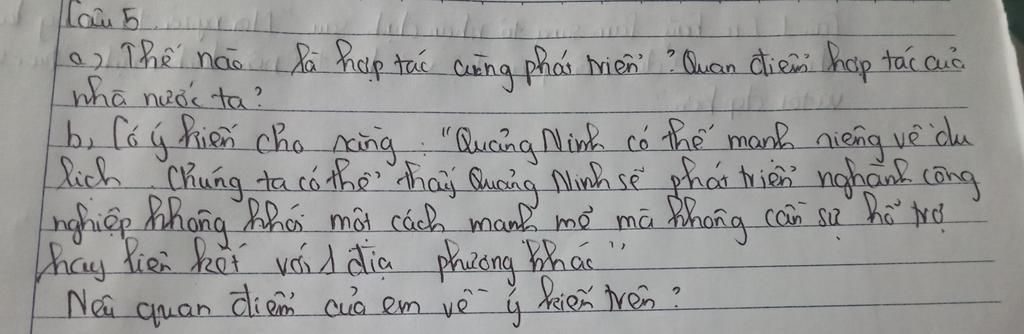 Câu 5
a, Thế nào là hợp tác cùng phát triển? Quan điểm hợp tác của
nhà nước ta?
b, Có ý kiến cho rằng: "Quảng Ninh có thế mạnh riêng về du
lịch. Chúng ta có thể thấy Quảng Ninh sẽ phát triển nghành công
nghiệp không khói một cách mạnh mẽ mà không cần sự hỗ trợ
hay liên kết với 1 địa phương khác"
Nêu quan điểm của em về ý kiến trên?